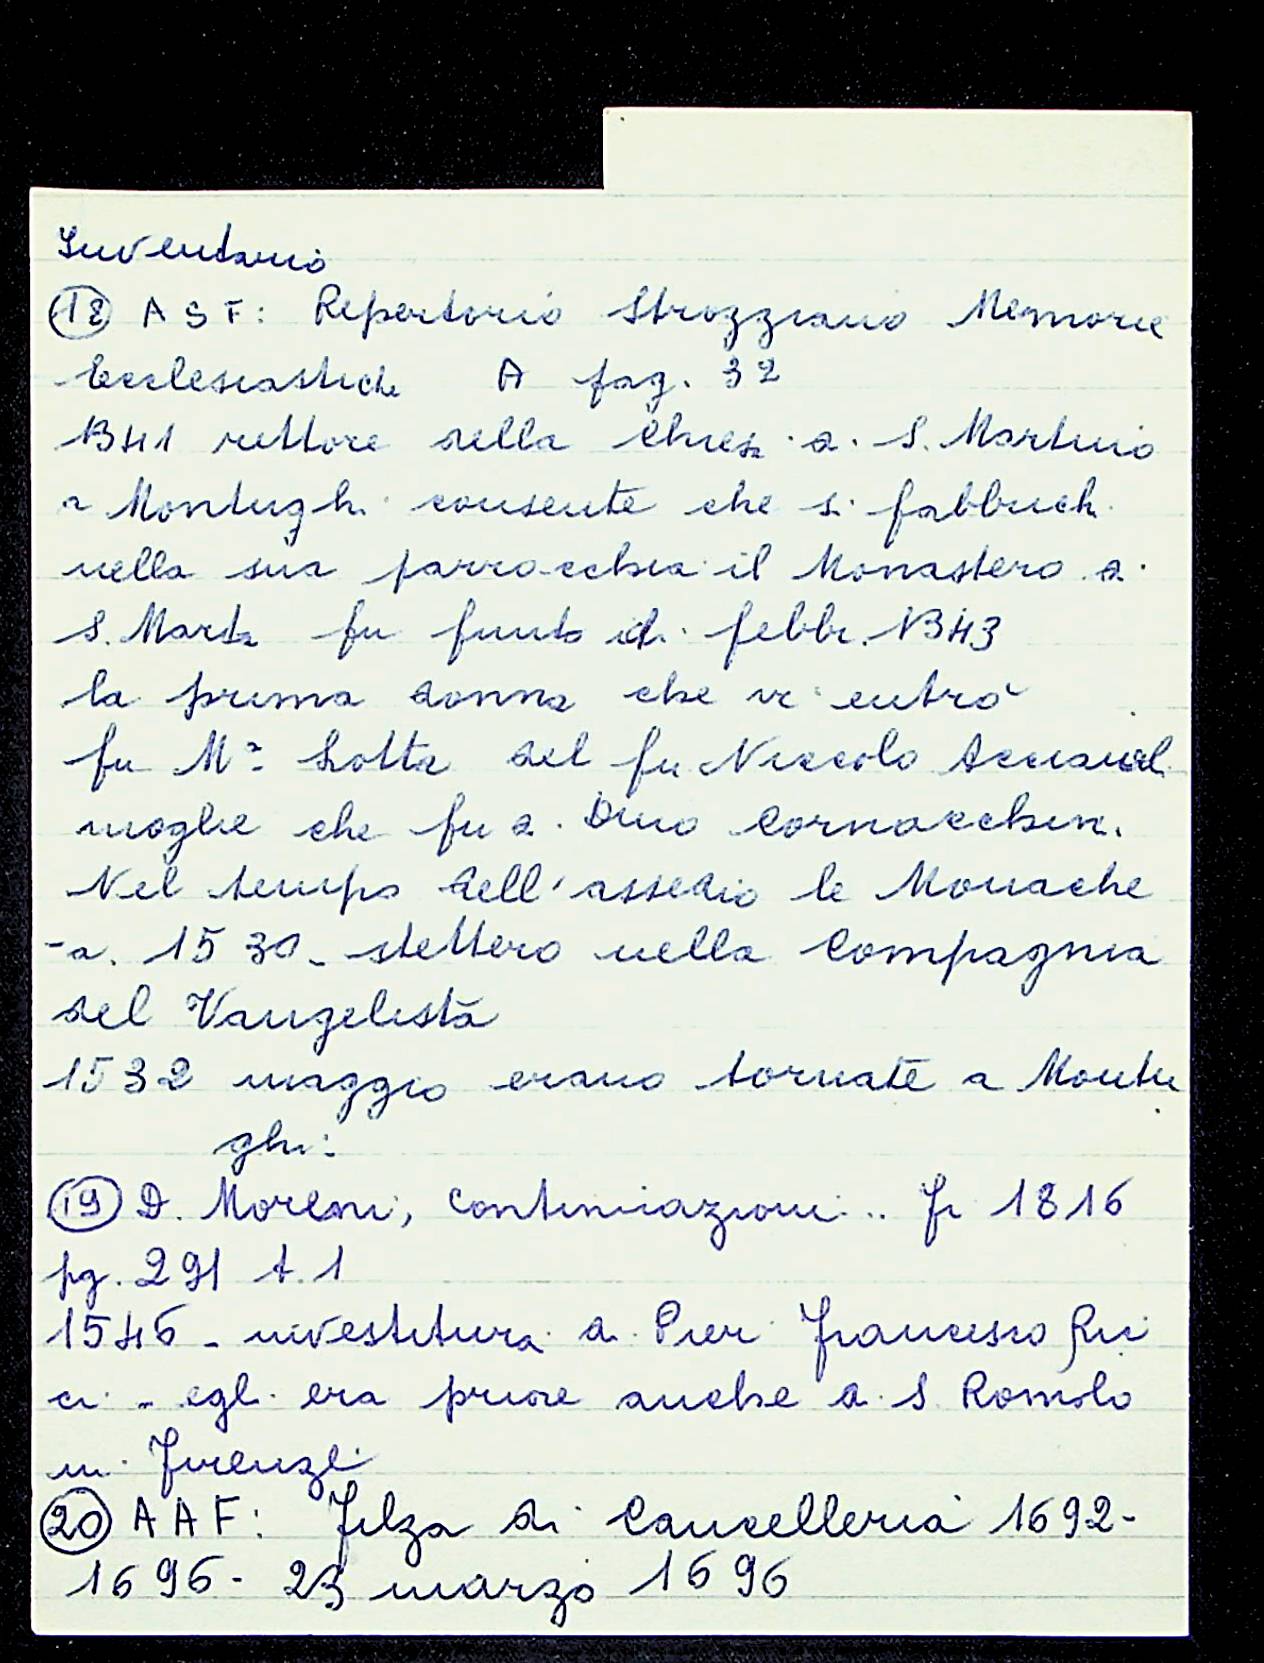 Inventario
(18) ASF: Repertorio Strozziano Memorie
Ecclesiastiche A pag. 32
1341 rettore della Chiesa di S. Martino
a Montughi consente che si fabbrichi
nella sua parrocchia il Monastero di
S. Marta fu finito di febbr. 1343
la prima donna che vi entrò
fu Mª Lotta del fu Niccolo Acciaiol
moglie che fu di Dino Cornacchin.
Nel tempo dell'assedio le Monache
-a. 1530- stettero nella Compagnia
del Vangelista
1532 maggio erano tornate a Montu
ghi:
(19) D. Moreni, continuazioni.. Fi 1816
pg. 291 t. 1
1546 - investitura di Pier Francesco Ric
ci - egli era priore anche di S Romolo
in Firenze
(20) AAF: Filza di Cancelleria 1692-
1696 - 23 marzo 1696